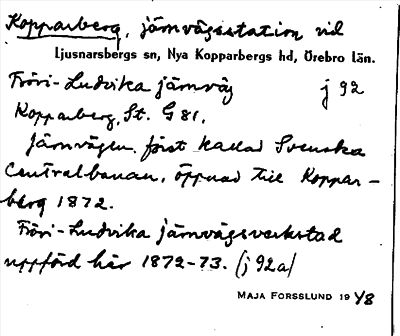 Kopparberg, järnvägsstation vid
Ljusnarsbergs sn, Nya Kopparbergs hd, Örebro län.
Fröri-Ludvika järnväg j 92
Kopparberg, St. G 81.
Järnvägen först kallad Svenska
Centralbanan, öppnad till Koppar-
berg 1872.
Fröri-Ludvika järnvägsverkstad
uppförd här 1872-73. (j 92a)
MAJA FORSSLUND 19 48